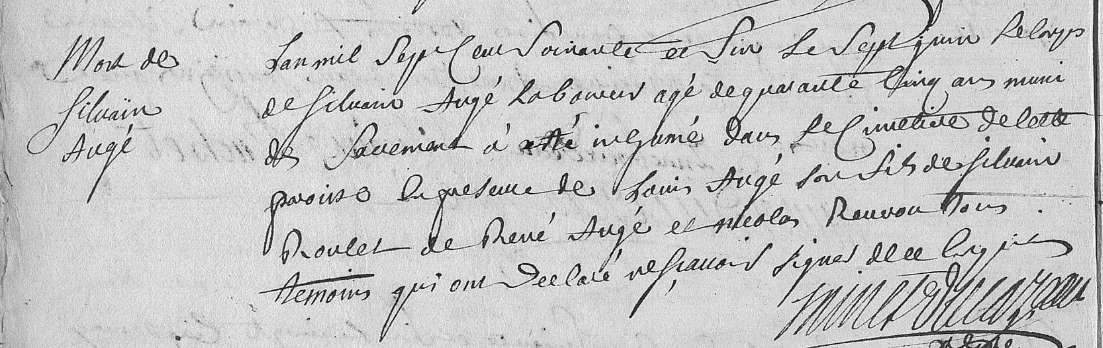 Mort de
Silvain
Augé
Lan mil Sept Cent Soixante et Six Le Sept juin Le Corps
de Silvain Augé Laboureur agé de quarante Cinq ans muni
des Sacrement à été inhumé dans Le Cimetiere de Cette
paroisse En presence de Louis Augé Son fils de Silvain
Roulet de René Augé et nicolas Rouvou tous
temoins qui ont Declaré ne Scavoir Signer de ce Enquis